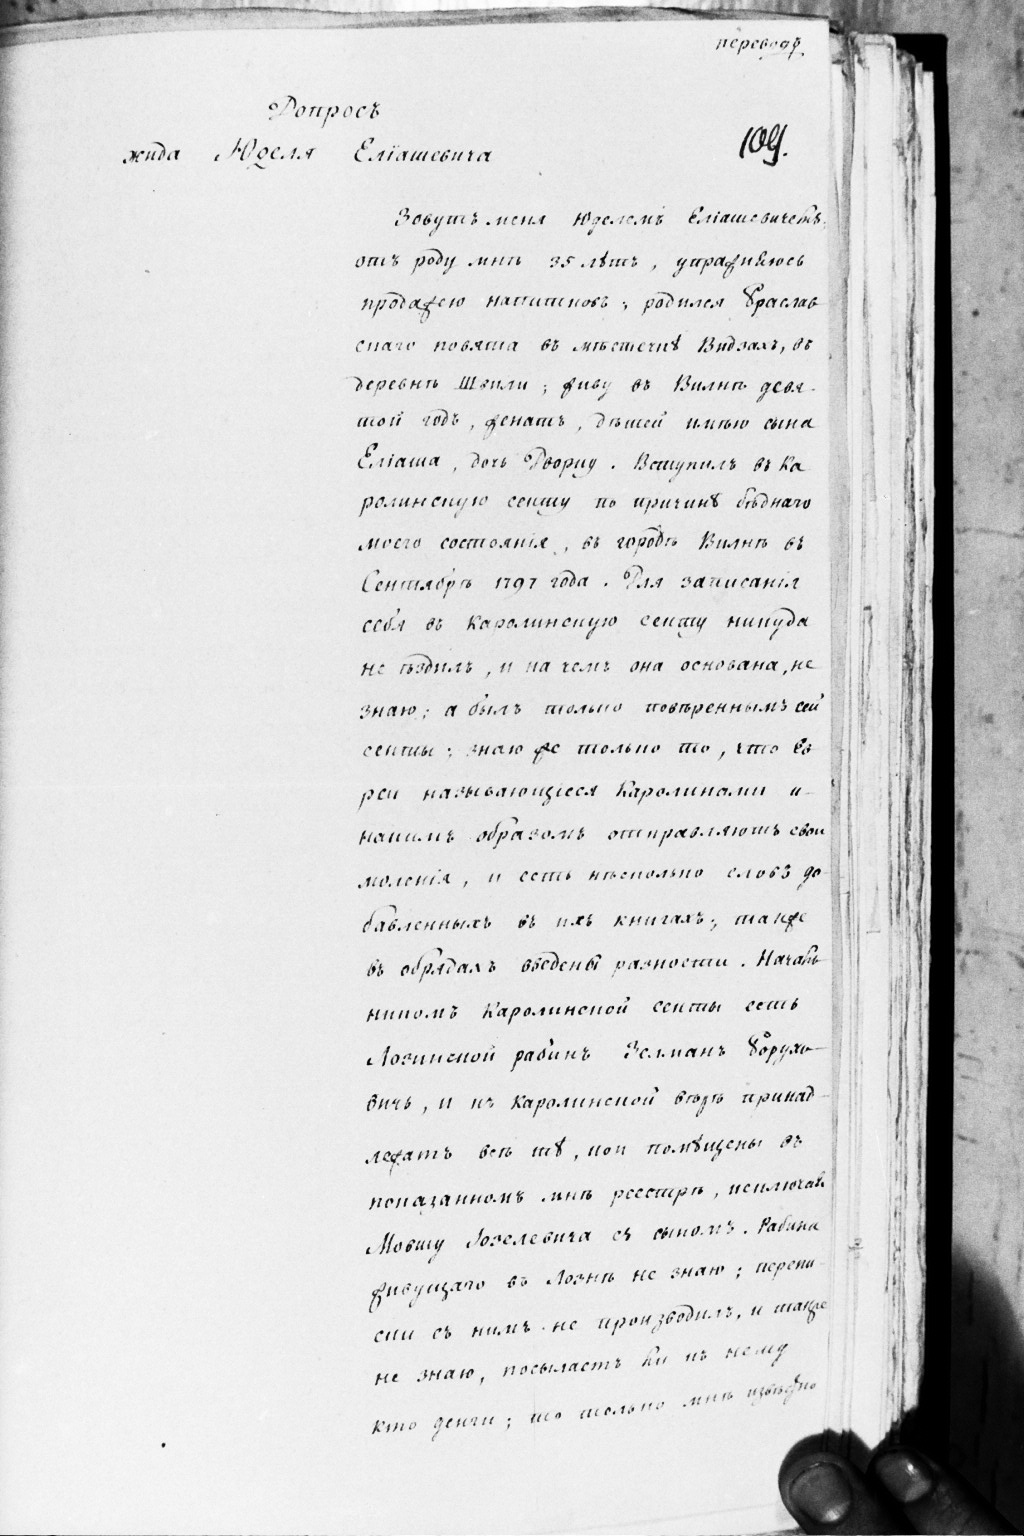 переводъ
Допросъ
109.
жида Юделя Еліашевича
Зовутъ меня Юделемъ Еліашевичемъ,
отъ роду мнѣ 35 лѣтъ, упражняюсь
продажею напитковъ; родился Браслав
скаго повята въ мѣстечкѣ Видзахъ, въ
деревнѣ Шкили; живу въ Вилнѣ девя-
той годъ, женатъ, дѣтей имѣю сына
Еліаша, дочь Дворцу. Вступилъ въ Ка
ролинскую секту по причинѣ бѣднаго
моего состоянія, въ городѣ Вилнѣ въ
Сентябрѣ 1797 года. Для записанія
себя въ Каролинскую секту никуда
не ѣздилъ, и на чемъ она основана, не
знаю; а былъ только повѣреннымъ сей
секты; знаю же только то, что Ев
реи называющіеся Каролинами и-
накимъ образомъ отправляютъ свои
моленія, и есть нѣсколько словъ до-
бавленныхъ въ ихъ книгахъ; также
въ обрядахъ введены разности. Началь
никомъ Каролинской секты есть
Лозинской рабинъ Зелманъ Борухо-
вичь, и къ Каролинской вѣрѣ принад-
лежатъ всѣ тѣ, кои помѣщены въ
показанномъ мнѣ реестрѣ, исключая
Мовшу Іозелевича съ сыномъ. Рабина
живущаго въ Лознѣ не знаю; перепи-
ски съ нимъ не производилъ, и также
не знаю, посылаетъ ли къ нему
кто денги; то только мнѣ извѣстно